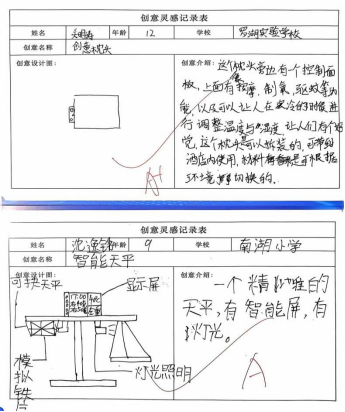 创意灵感记录表
姓名 年龄 12 学校 罗湖实验学校
创意名称 创意枕头
创意设计图: 创意介绍: 这个枕头旁边有一个控制面
板,上面有按摩,制氧,驱蚊等功
能,以及可以让人在 的时候进
行调整温度与湿度,让人们有个好
觉,这个枕头可以拆装的,可带到
酒店内使用,材料 是可根据
环境 切换的.
A+
创意灵感记录表
姓名 年龄 9 学校 南湖小学
创意名称 智能天平
创意设计图: 创意介绍:
显示屏
一个精准的
天平,有智能屏,有
灯光。
灯光照明
模
拟
铁
A